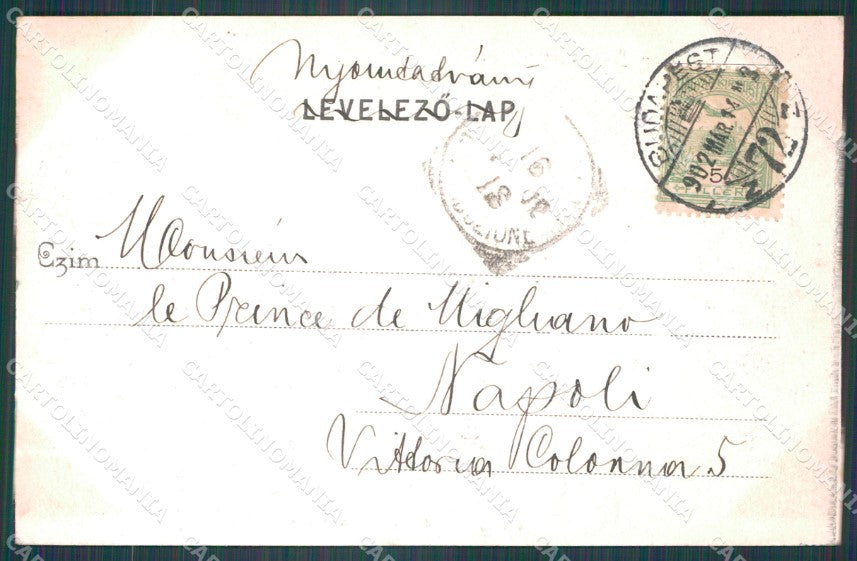 Nyomdadvány
LEVELEZŐ-LAP
BUDAPEST
902 MAR. 14
72
5
Czim
Monsieur
le Prince de Migliano
Napoli
Vittoria Colonna 5
CARTOLINOMANIA